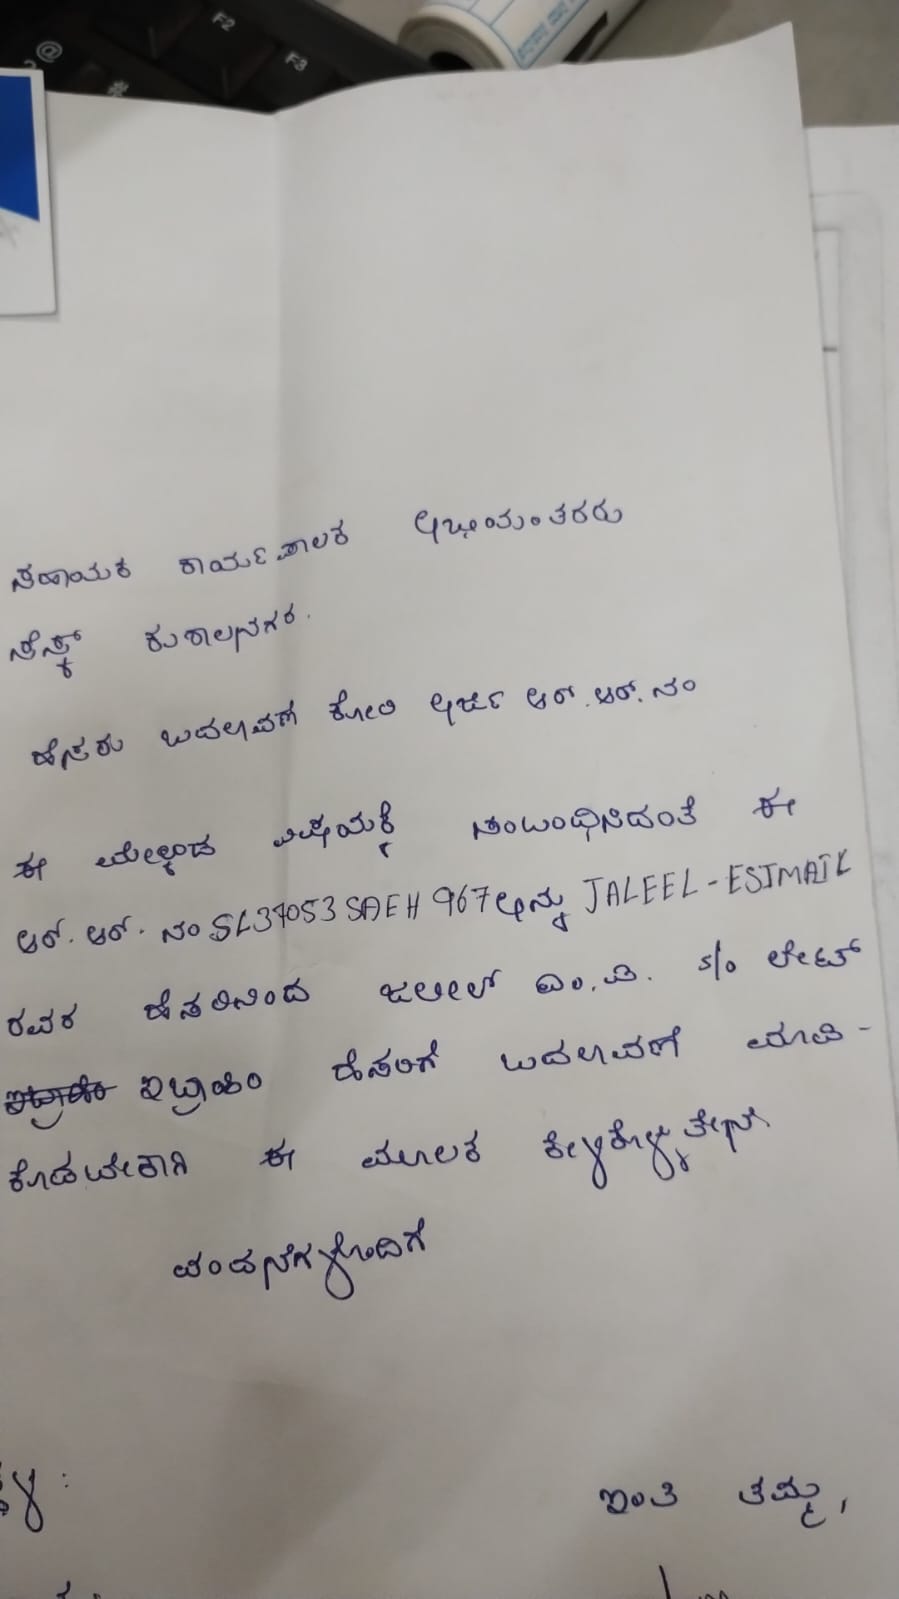 @
F2
F3
ಸಹಾಯಕ ಕಾರ್ಯಪಾಲಕ ಅಭಿಯಂತರರು
ಸೆಸ್ಕ್ ಕುಶಾಲನಗರ.
ಹೆಸರು ಬದಲಾವಣೆ ಕೋರಿ ಅರ್ಜಿ ಆರ್.ಆರ್.ನಂ
ಈ ಮೇಲ್ಕಂಡ ವಿಷಯಕ್ಕೆ ಸಂಬಂಧಿಸಿದಂತೆ ಈ
ಆರ್.ಆರ್. ನಂ SL37053 SAEH 967 ಅನ್ನು JALEEL-ESIMAIL
ರವರ ಹೆಸರಿನಿಂದ ಜಲೀಲ್ ಎಂ.ವಿ. s/o ಲೇಟ್
ಇಬ್ರಾಹಿಂ ಹೆಸರಿಗೆ ಬದಲಾವಣೆ ಮಾಡಿ-
ಕೊಡಬೇಕಾಗಿ ಈ ಮೂಲಕ ಕೇಳಿಕೊಳ್ಳುತ್ತೇನೆ
ವಂದನೆಗಳೊಂದಿಗೆ
ಇಂತಿ ತಮ್ಮ,